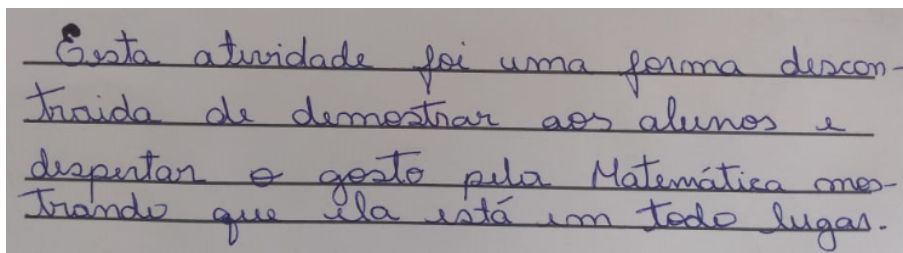 Esta atividade foi uma forma descon-
traida de demostrar aos alunos e
despertar o gosto pela Matemática mos-
trando que ela está em todo lugar.